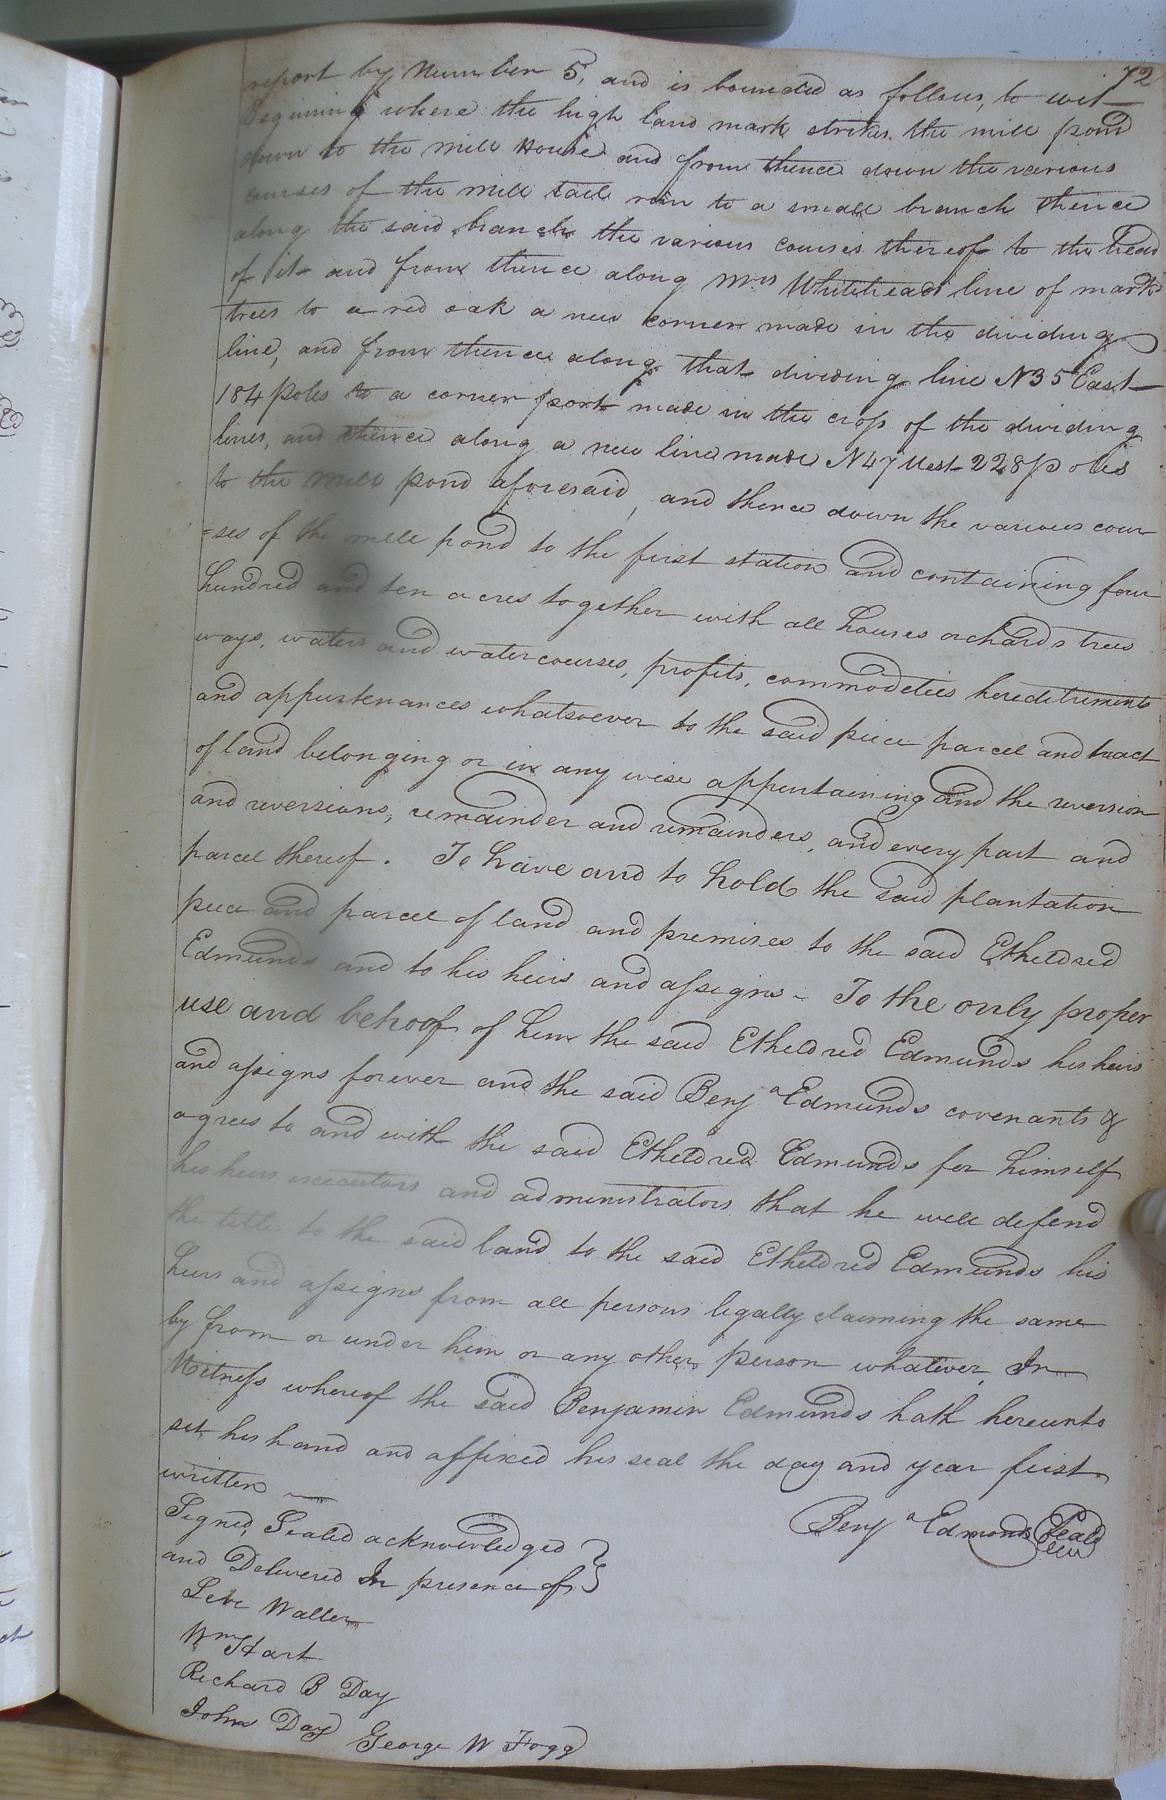 72
report by Number 5, and is bounded as follows, to wit
Beginning where the high land mark strikes the mill pond
down to the mill House and from thence down the various
courses of the mill tail run to a small branch thence
along the said branch the various courses thereof to the head
of it and from thence along Mrs Whiteheads line of markd
trees to a red oak a new corner made in the dividing
line, and from thence along that dividing line N35 East
184 poles to a corner post made in the cross of the dividing
lines, and thence along a new line made N47 West 228 poles
to the mill pond aforesaid, and thence down the various cour
=ses of the mill pond to the first station and containing four
hundred and ten acres together with all houses orchards trees
ways, waters and watercourses, profits, commodeties hereditiments
and appurtenances whatsoever to the said piece parcel and tract
of land belonging or in any wise appurtaining and the reversion
and reversions, remainder and remainders, and every part and
parcel thereof. To have and to hold the said plantation
piece and parcel of land and premises to the said Etheldred
Edmunds and to his heirs and assigns - To the only proper
use and behoof of him the said Etheldred Edmunds his heirs
and assigns forever and the said Benja Edmunds covenants &
agrees to and with the said Etheldred Edmunds for himself
his heirs executors and administrators that he will defend
the title to the said land to the said Etheldred Edmunds his
heirs and assigns from all persons legally claiming the same
by from or under him or any other person whatever. In
Witness whereof the said Benjamin Edmunds hath hereunto
set his hand and affixed his seal the day and year first
written
Benja Edmonds Seal
Signed, Sealed acknowledged }
and Delivered In presence of }
Levi Waller
Wm Hart
Richard B Day
John Day George W Fogg